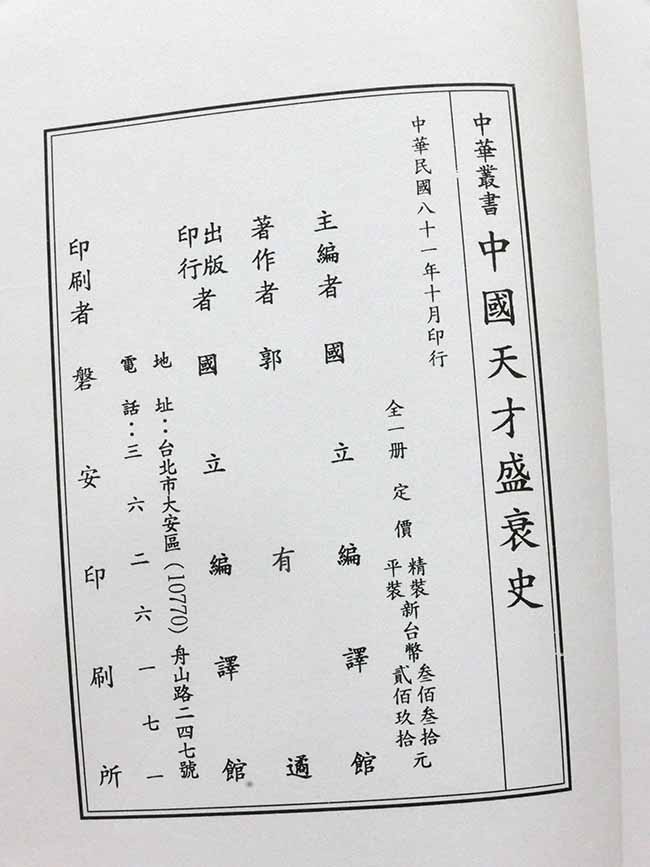 中華叢書 中國天才盛衰史
中華民國八十一年十月印行
全一册 定價 精裝新台幣叁佰叁拾元
平裝 貳佰玖拾
主編者 國立編譯館
著作者 郭有遹
出版者 國立編譯館
印行
地址：台北市大安區(10770)舟山路二四七號
電話：三六二六一七一
印刷者 磐安印刷所